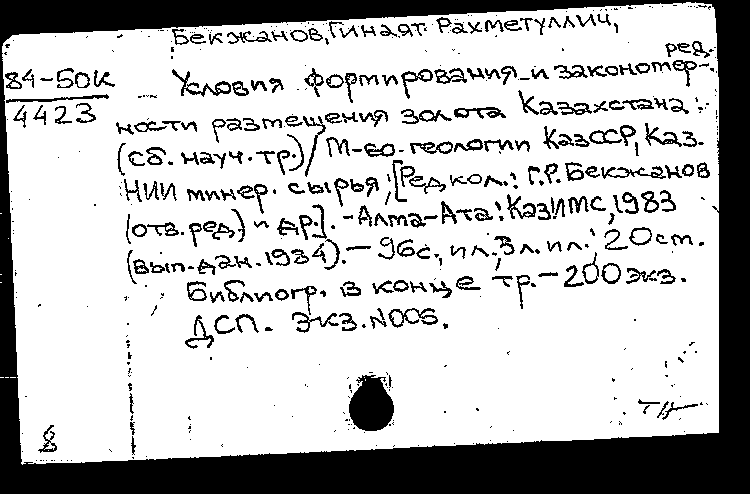 Бекжанов, Гиният Рахметуллич,
ред.
84-50К
4423
Условия формирования и закономер-
ности размещения золота Казахстана:
(сб. науч. тр.)/М-во геологии КазССР, Каз.
НИИ минер. сырья; [Редкол.: Г.Р. Бекжанов
(отв. ред.) и др.]. - Алма-Ата: КазИМС, 1983
(вып. дан. 1984). - 96с., ил., 3 л. ил.; 20 см.
Библиогр. в конце тр. - 200 экз.
ДСП. Экз. N006.
8
ТН